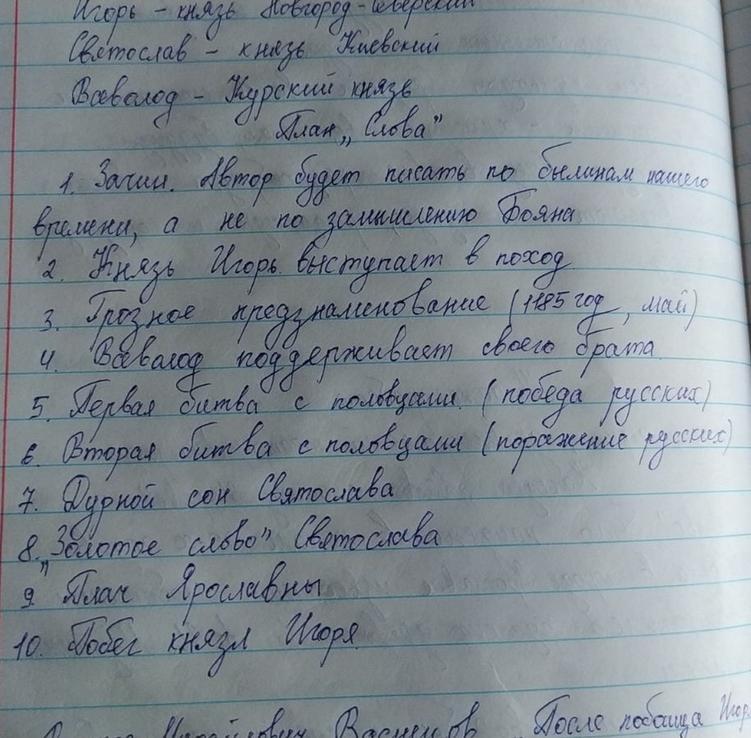 Игорь – князь Новгород-Северский
Святослав – князь Киевский
Всеволод – Курский князь
План „Слова"
1. Зачин. Автор будет писать по былинам нашего
времени, а не по замышлению Бояна
2. Князь Игорь выступает в поход
3. Грозное предзнаменование (1185 год, май)
4. Всеволод поддерживает своего брата
5. Первая битва с половцами (победа русских)
6. Вторая битва с половцами (поражение русских)
7. Дурной сон Святослава
8. „Золотое слово" Святослава
9 Плач Ярославны
10. Побег князя Игоря
Васнецов „После побоища Игор